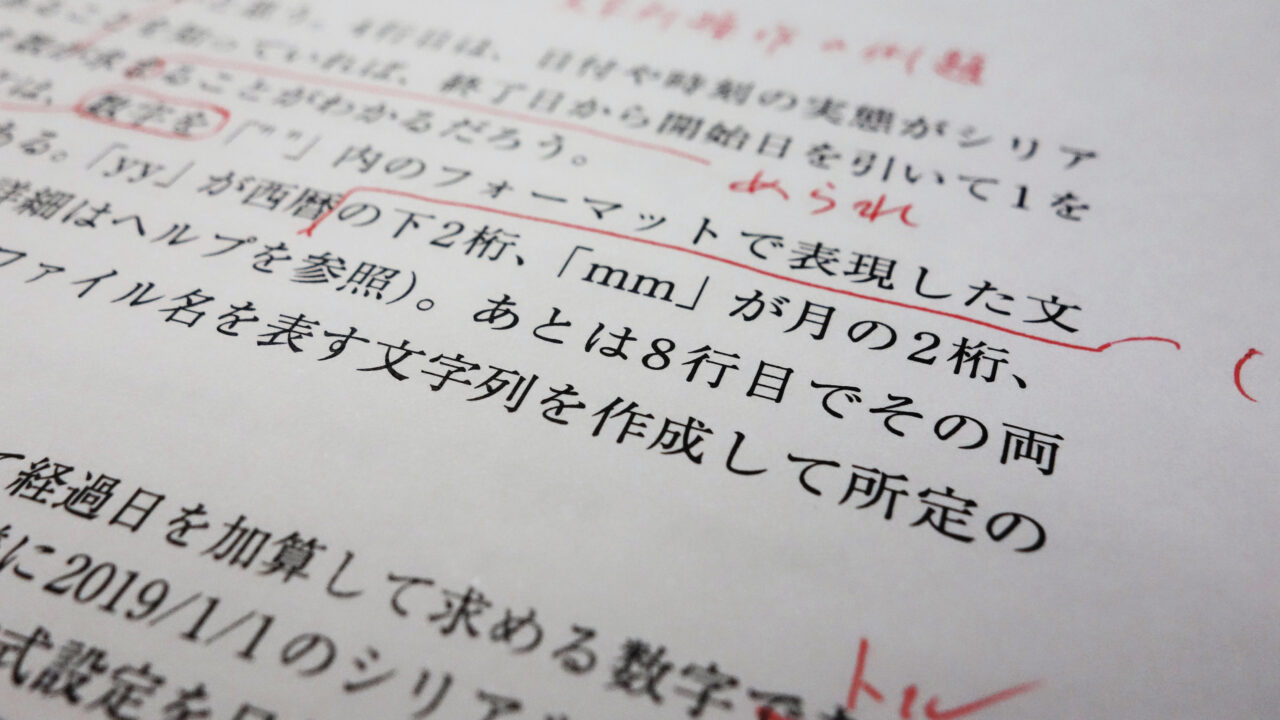 の例題
思う。4行目は、日付や時刻の実態がシリア
ることを知っていれば、終了日から開始日を引いて1を
数が求まることがわかるだろう。
められ
は、数字を「""」内のフォーマットで表現した文
める。「yy」が西暦の下2桁、「mm」が月の2桁、
詳細はヘルプを参照)。あとは8行目でその両
ファイル名を表す文字列を作成して所定の
て経過日を加算して求める数字で
に2019/1/1のシリア
トル
式設定を